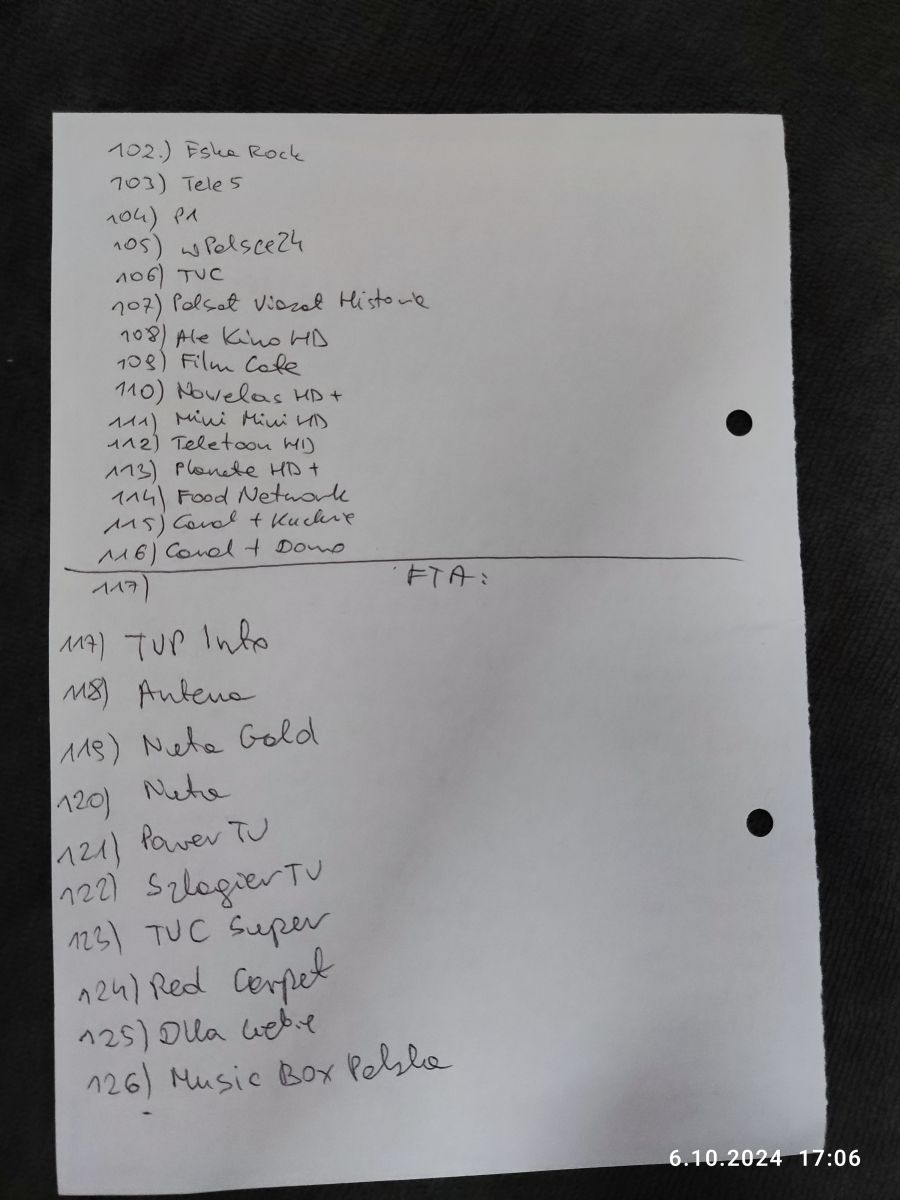 102.) Eska Rock
103) Tele 5
104) P1
105) wPolsce24
106) TVC
107) Polsat Viasat Historie
108) Ale Kino HD
109) Film Cafe
110) Novelas HD+
111) Mini Mini HD
112) Teletoon HD
113) Planete HD+
114) Food Network
115) Canal + Kuchnie
116) Canal + Domo
117) FTA:
117) TVP Info
118) Antena
119) Nuta Gold
120) Nuta
121) Power TV
122) Szlagier TV
123) TVC Super
124) Red Carpet
125) Dlla Ciebie
126) Music Box Polska
6.10.2024 17:06